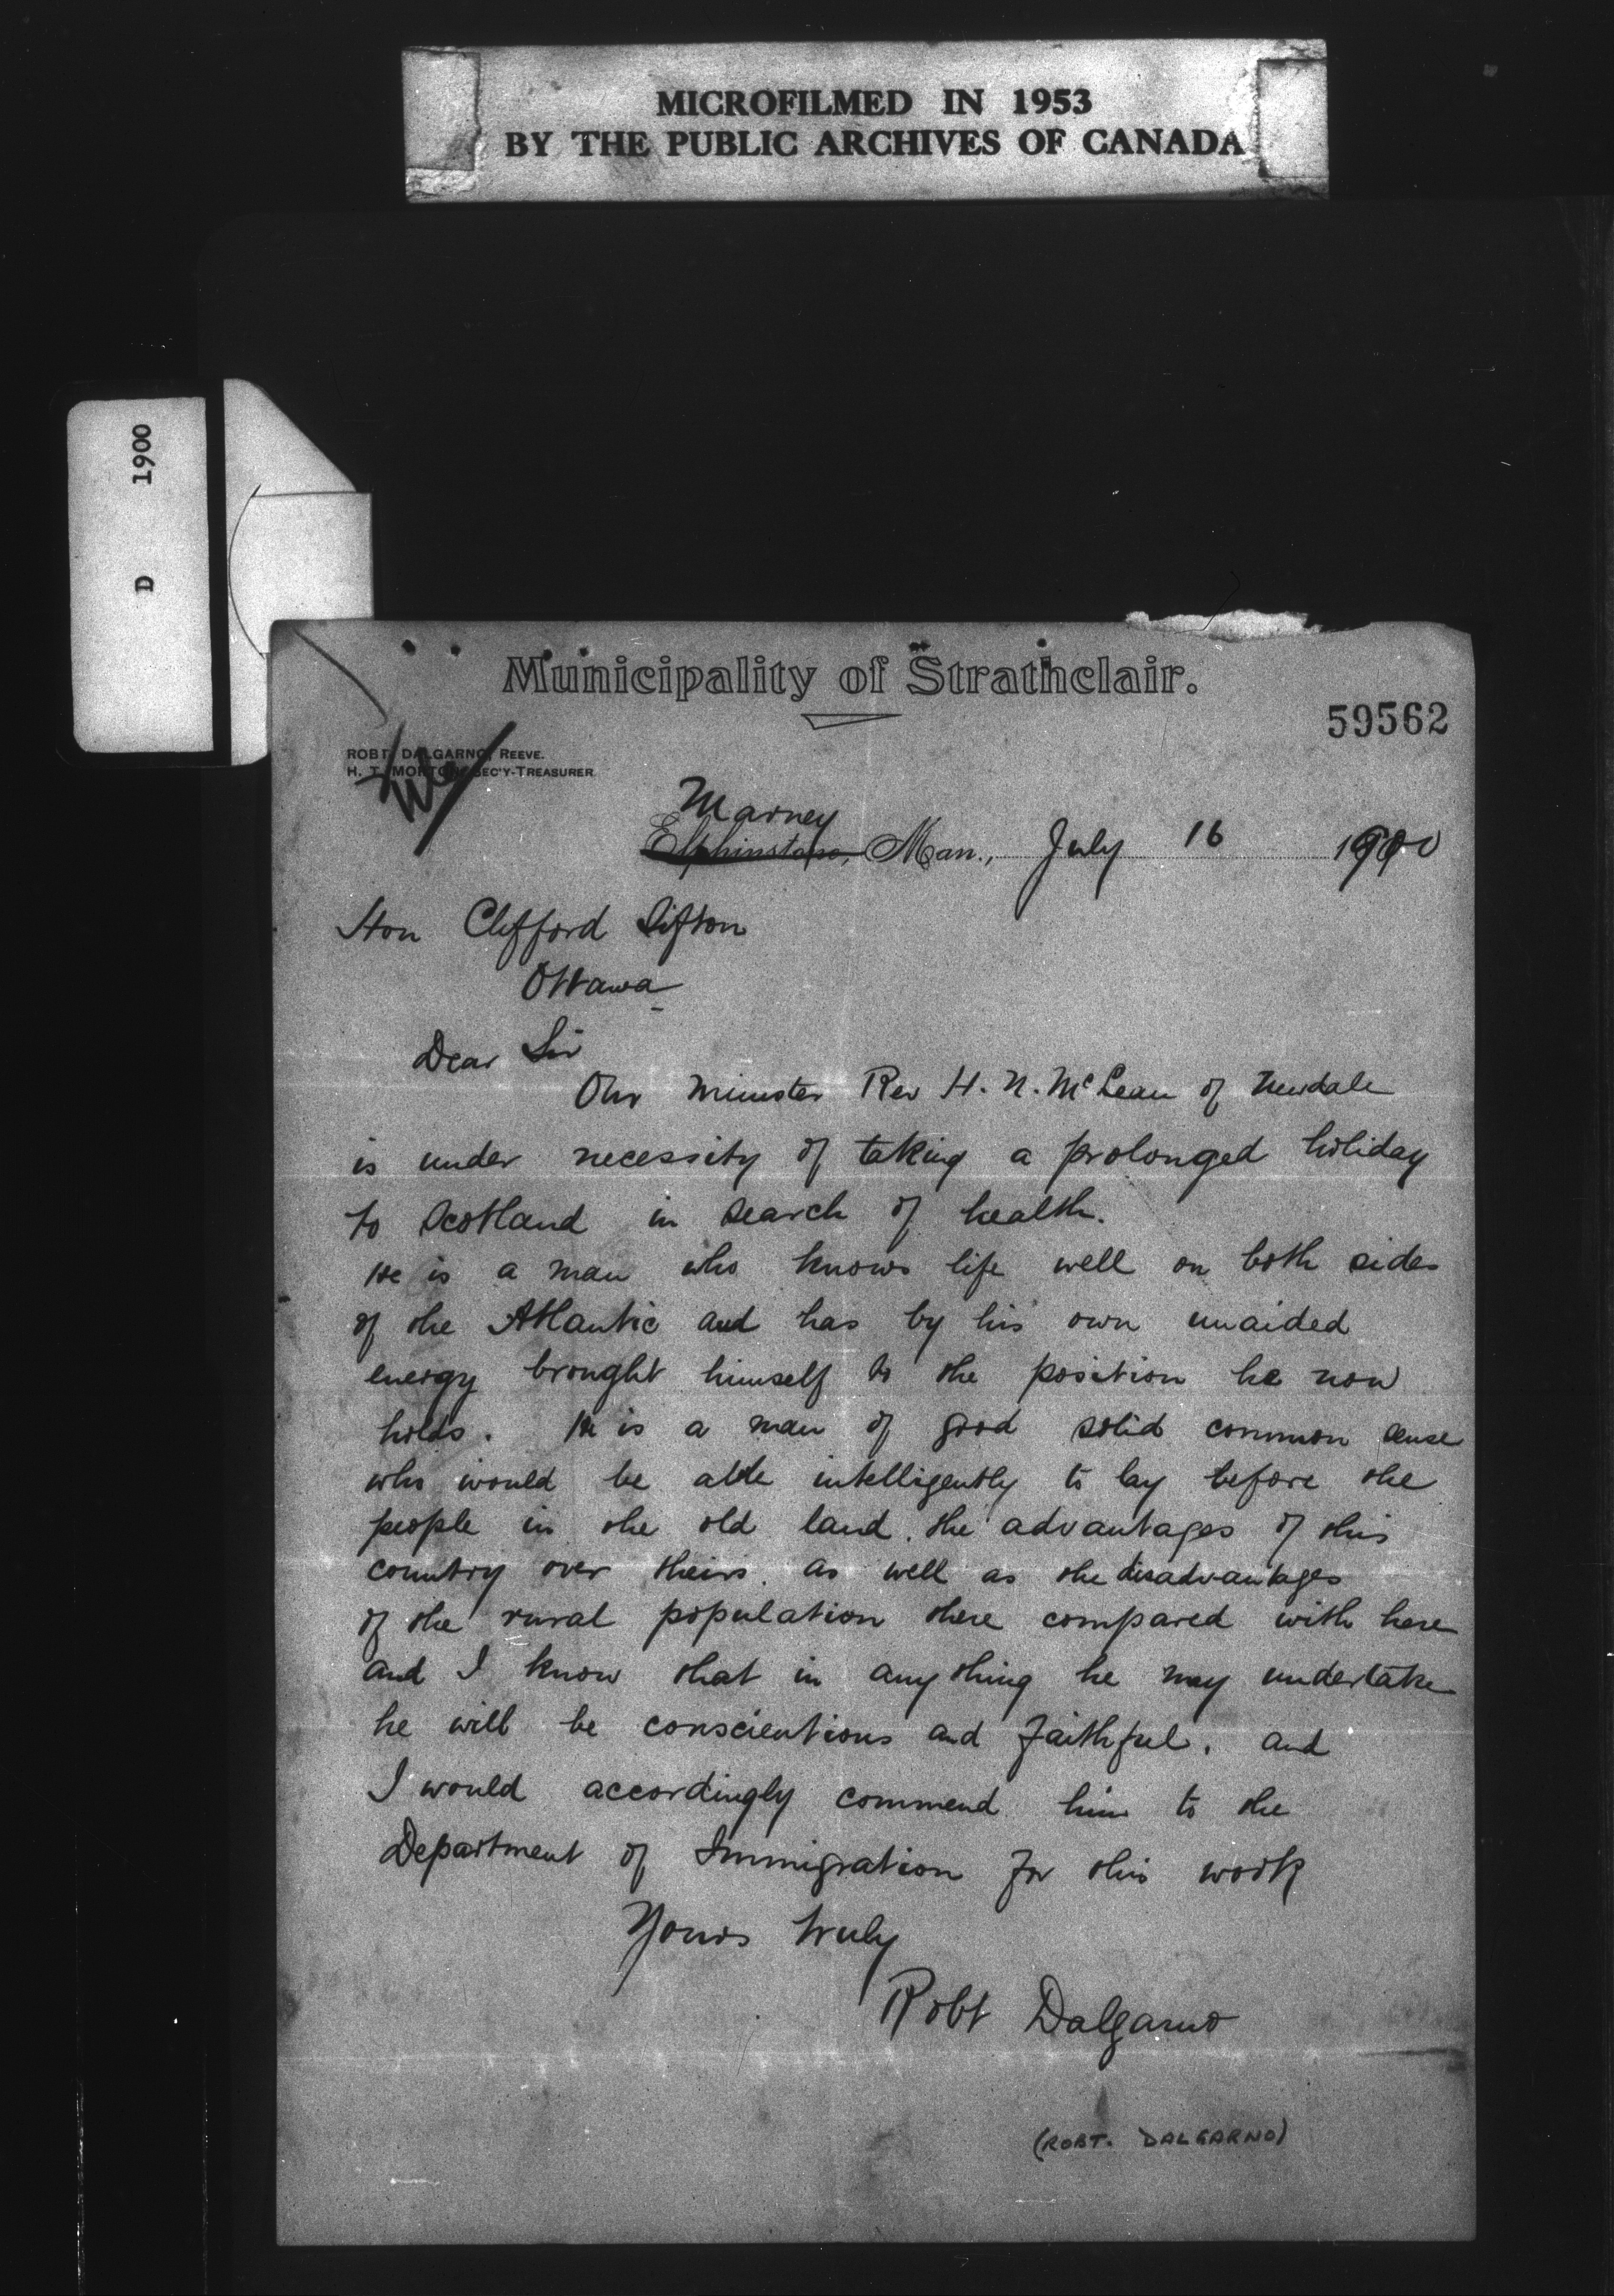 MICROFILMED IN 1953
BY THE PUBLIC ARCHIVES OF CANADA
D 1900
Municipality of Strathclair.
59562
ROBT. DALGARNO, REEVE.
H. T. MORTON, SEC'Y-TREASURER
Marney
Elphinstone, Man., July 16 1900
Hon Clifford Sifton
Ottawa
Dear Sir
Our minister Rev H. N. McLean of Newdale
is under necessity of taking a prolonged holiday
to Scotland in search of health.
He is a man who knows life well on both sides
of the Atlantic and has by his own unaided
energy brought himself to the position he now
holds. He is a man of good solid common sense
who would be able intelligently to lay before the
people in the old land. the advantages of this
country over theirs. as well as the disadvantages
of the rural population there compared with here
and I know that in any thing he may undertake
he will be conscientious and faithful. and
I would accordingly commend him to the
Department of Immigration for this work
Yours truly
Robt Dalgarno
(ROBT. DALGARNO)